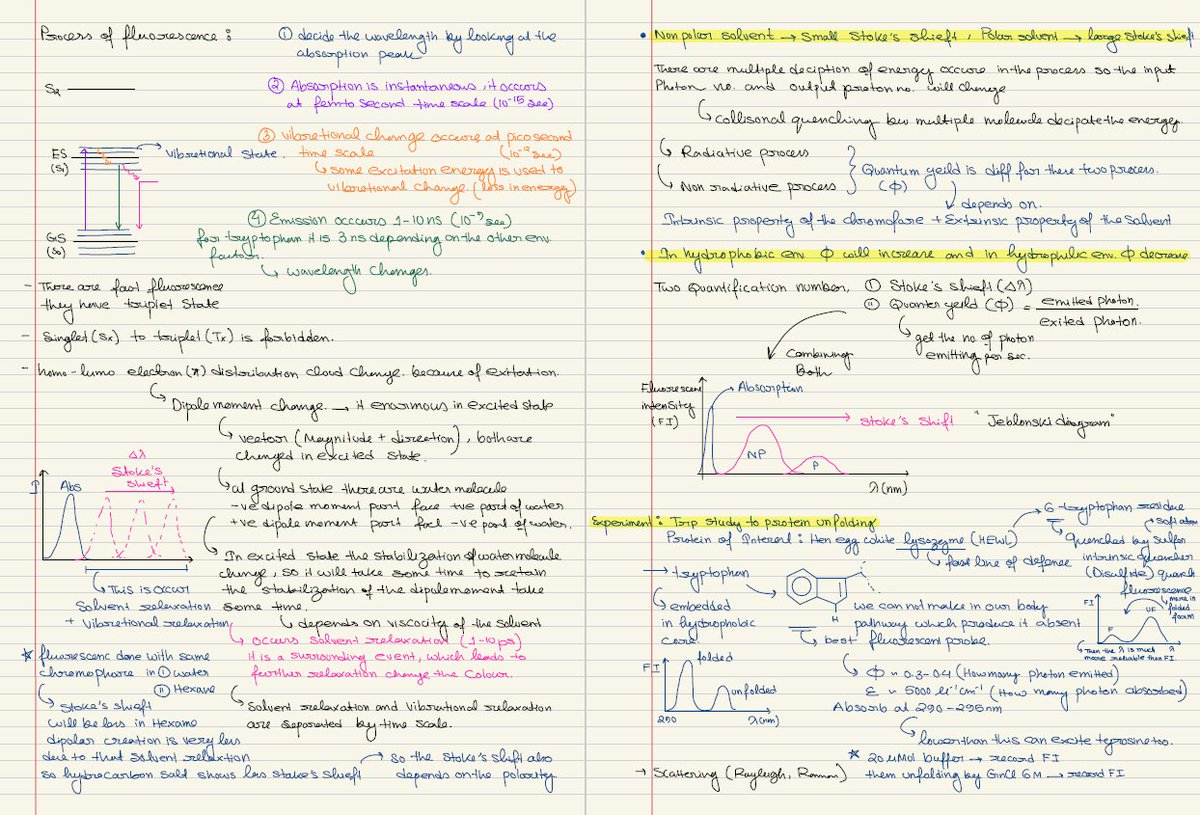 Process of fluorescence :
① decide the wavelength by looking at the
absorption peak
② Absorption is instantaneous, it occurs
at femto second time scale (10⁻¹⁵ sec)
③ vibrational change occurs at picosecond
time scale (10⁻¹² sec)
↳ some excitation energy is used to
vibrational change. (less in energy)
④ Emission occurs 1-10 ns (10⁻⁹ sec)
for tryptophan it is 3 ns depending on the other env.
factor.
↳ wavelength changes.
ES
(S₁)
Vibrational State.
GS
(S₀)
- There are fast fluorescence
they have triplet state
- Singlet (Sx) to triplet (Tx) is forbidden.
- homo-lumo electron (π) distribution cloud change. because of exitation.
↳ Dipole moment change. → it enormous in excited state
↳ vector (Magnitude + direction), both are
changed in excited state.
Δλ
Stoke's
sheft
I
Abs
↳ at ground state there are water molecule
-ve dipole moment part face +ve part of water
+ve dipole moment part face -ve part of water.
↳ In excited state the stabilization of water molecule
change, so it will take some time to retain
the stabilization of the dipole moment take
some time.
↳ depends on viscosity of the solvent
↳ This is occur
Solvent relaxation
+ Vibrational relaxation
↳ occurs Solvent relaxation (1-10 ps)
it is a surrounding event, which leads to
further relaxation change the Colour.
↳ Solvent relaxation and Vibrational relaxation
are seperated by time scale.
☆ fluorescenc done with same
chromophore in ① water
② Hexane
↳ Stoke's sheft
will be less in Hexame
dipolar creation is very less
due to that Solvent relaxtion
so hydrocarbon sald shows less stoke's sheft
→ so the stoke's shift also
depends on the polarity
• Non polar solvent → small Stoke's shieft, Polar solvent → large stoke's shift
There are multiple deciption of energy occure in the process so the input
Photon no. and output proton no. will change
↳ collisonal quenching bw multiple molecule decipate the energy
↳ Radiative process
↳ Non radiative process
Quantum yeild is diff for these two process.
(Φ)
↳ depends on.
Intrinsic property of the chromofore + Extrinsic property of the Solvent
• In hydrophobic env Φ will increase and in hydrophilic env. Φ decrease
Two Quantification number, ① Stoke's shieft (Δλ)
② Quanter yeild (Φ) = emitted photon. / exited photon.
↳ get the no. of photon
emitting per sec.
Combining
Both
Fluorescene
intensity
(FI)
Absorption
Stoke's Shift
"Jeblonski diagram"
NP
P
λ(nm)
Experiment : Trp study to protein unfolding
Protein of Interest : Hen egg white lysozyme (HEWL)
↳ fast line of defence
→ 6-tryptophan residue
Quenched by sulfer
intrinsic quencher
(Disulfide) quench
fluorescence
→ tryptophan
↳ embedded
in hydrophobic
core.
H
we can not make in our body
pathway which produce it absent
↳ best fluorescent probe.
FI
F
UF
λ
more in
folded
foam
Than the λ is much
more reliable than FI.
FI
folded
unfolded
290
λ(nm)
↳ Φ ~ 0.3-0.4 (How many photon emitted)
ε ~ 5000 M⁻¹cm⁻¹ (How many photon absorbed)
Absorb at 290-295nm
↳ lower than this can excite tyrosine too.
☆ 20 μMol buffer → record FI
them unfolding by GnCl 6M → record FI
→ Scattering (Rayleigh, Raman)